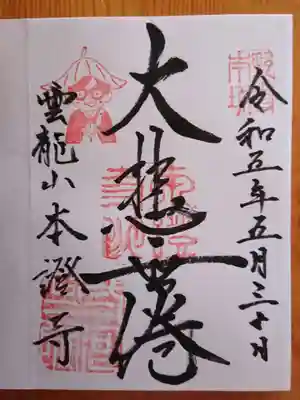 令和五年五月三十日
大悲無倦
雲龍山本證寺